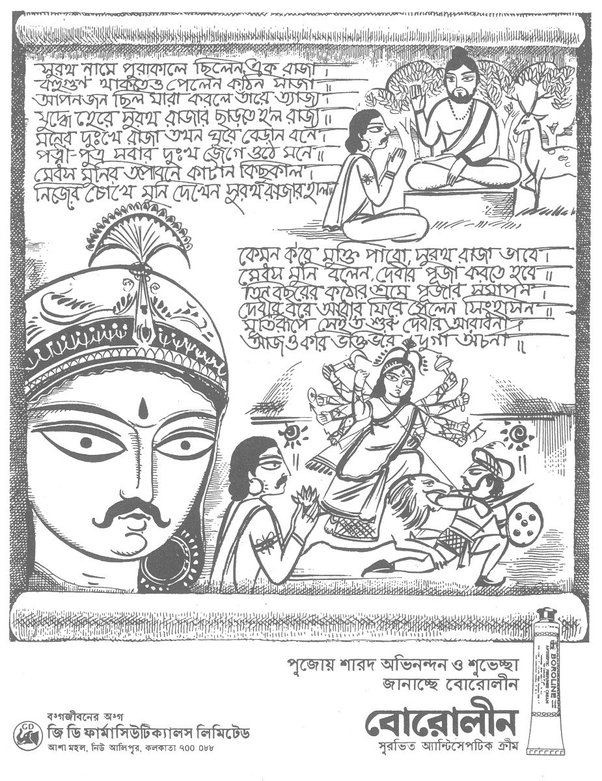 সুরথ নামে পুরাকালে ছিলেন এক রাজা।
বহুগুণ থাকতেও পেলেন কঠিন সাজা॥
আপনজন ছিল যারা করলে তারে ত্যাজ্য।
যুদ্ধে হেরে সুরথ রাজার ছাড়তে হল রাজ্য॥
মনের দুঃখে রাজা তখন ঘুরে বেড়ান বনে।
পত্নী-পুত্র সবার দুঃখ জেগে ওঠে মনে॥
মেধস মুনির তপোবনে কাটান কিছুকাল।
নিজের চোখে মুনি দেখেন সুরথ রাজার হাল॥
কেমন করে মুক্তি পাবো, সুরথ রাজা ভাবে।
মেধস মুনি বলেন, দেবীর পূজা করতে হবে॥
তিন বছরের কঠোর শ্রমে পূজার সমাপন।
দেবীর বরে আবার ফিরে পেলেন সিংহাসন॥
মাতৃরূপে সেইত শুরু দেবীর আরাধনা।
আজও করি ভক্তিভরে দুর্গা অর্চনা॥
পুজোয় শারদ অভিনন্দন ও শুভেচ্ছা
জানাচ্ছে বোরোলীন
বোরোলীন
সুরভিত অ্যান্টিসেপটিক ক্রীম
BOROLINE
GD
বঙ্গজীবনের অঙ্গ
জি ডি ফার্মাসিউটিক্যালস লিমিটেড
আশা মহল, নিউ আলিপুর, কলকাতা ৭০০ ০৮৮